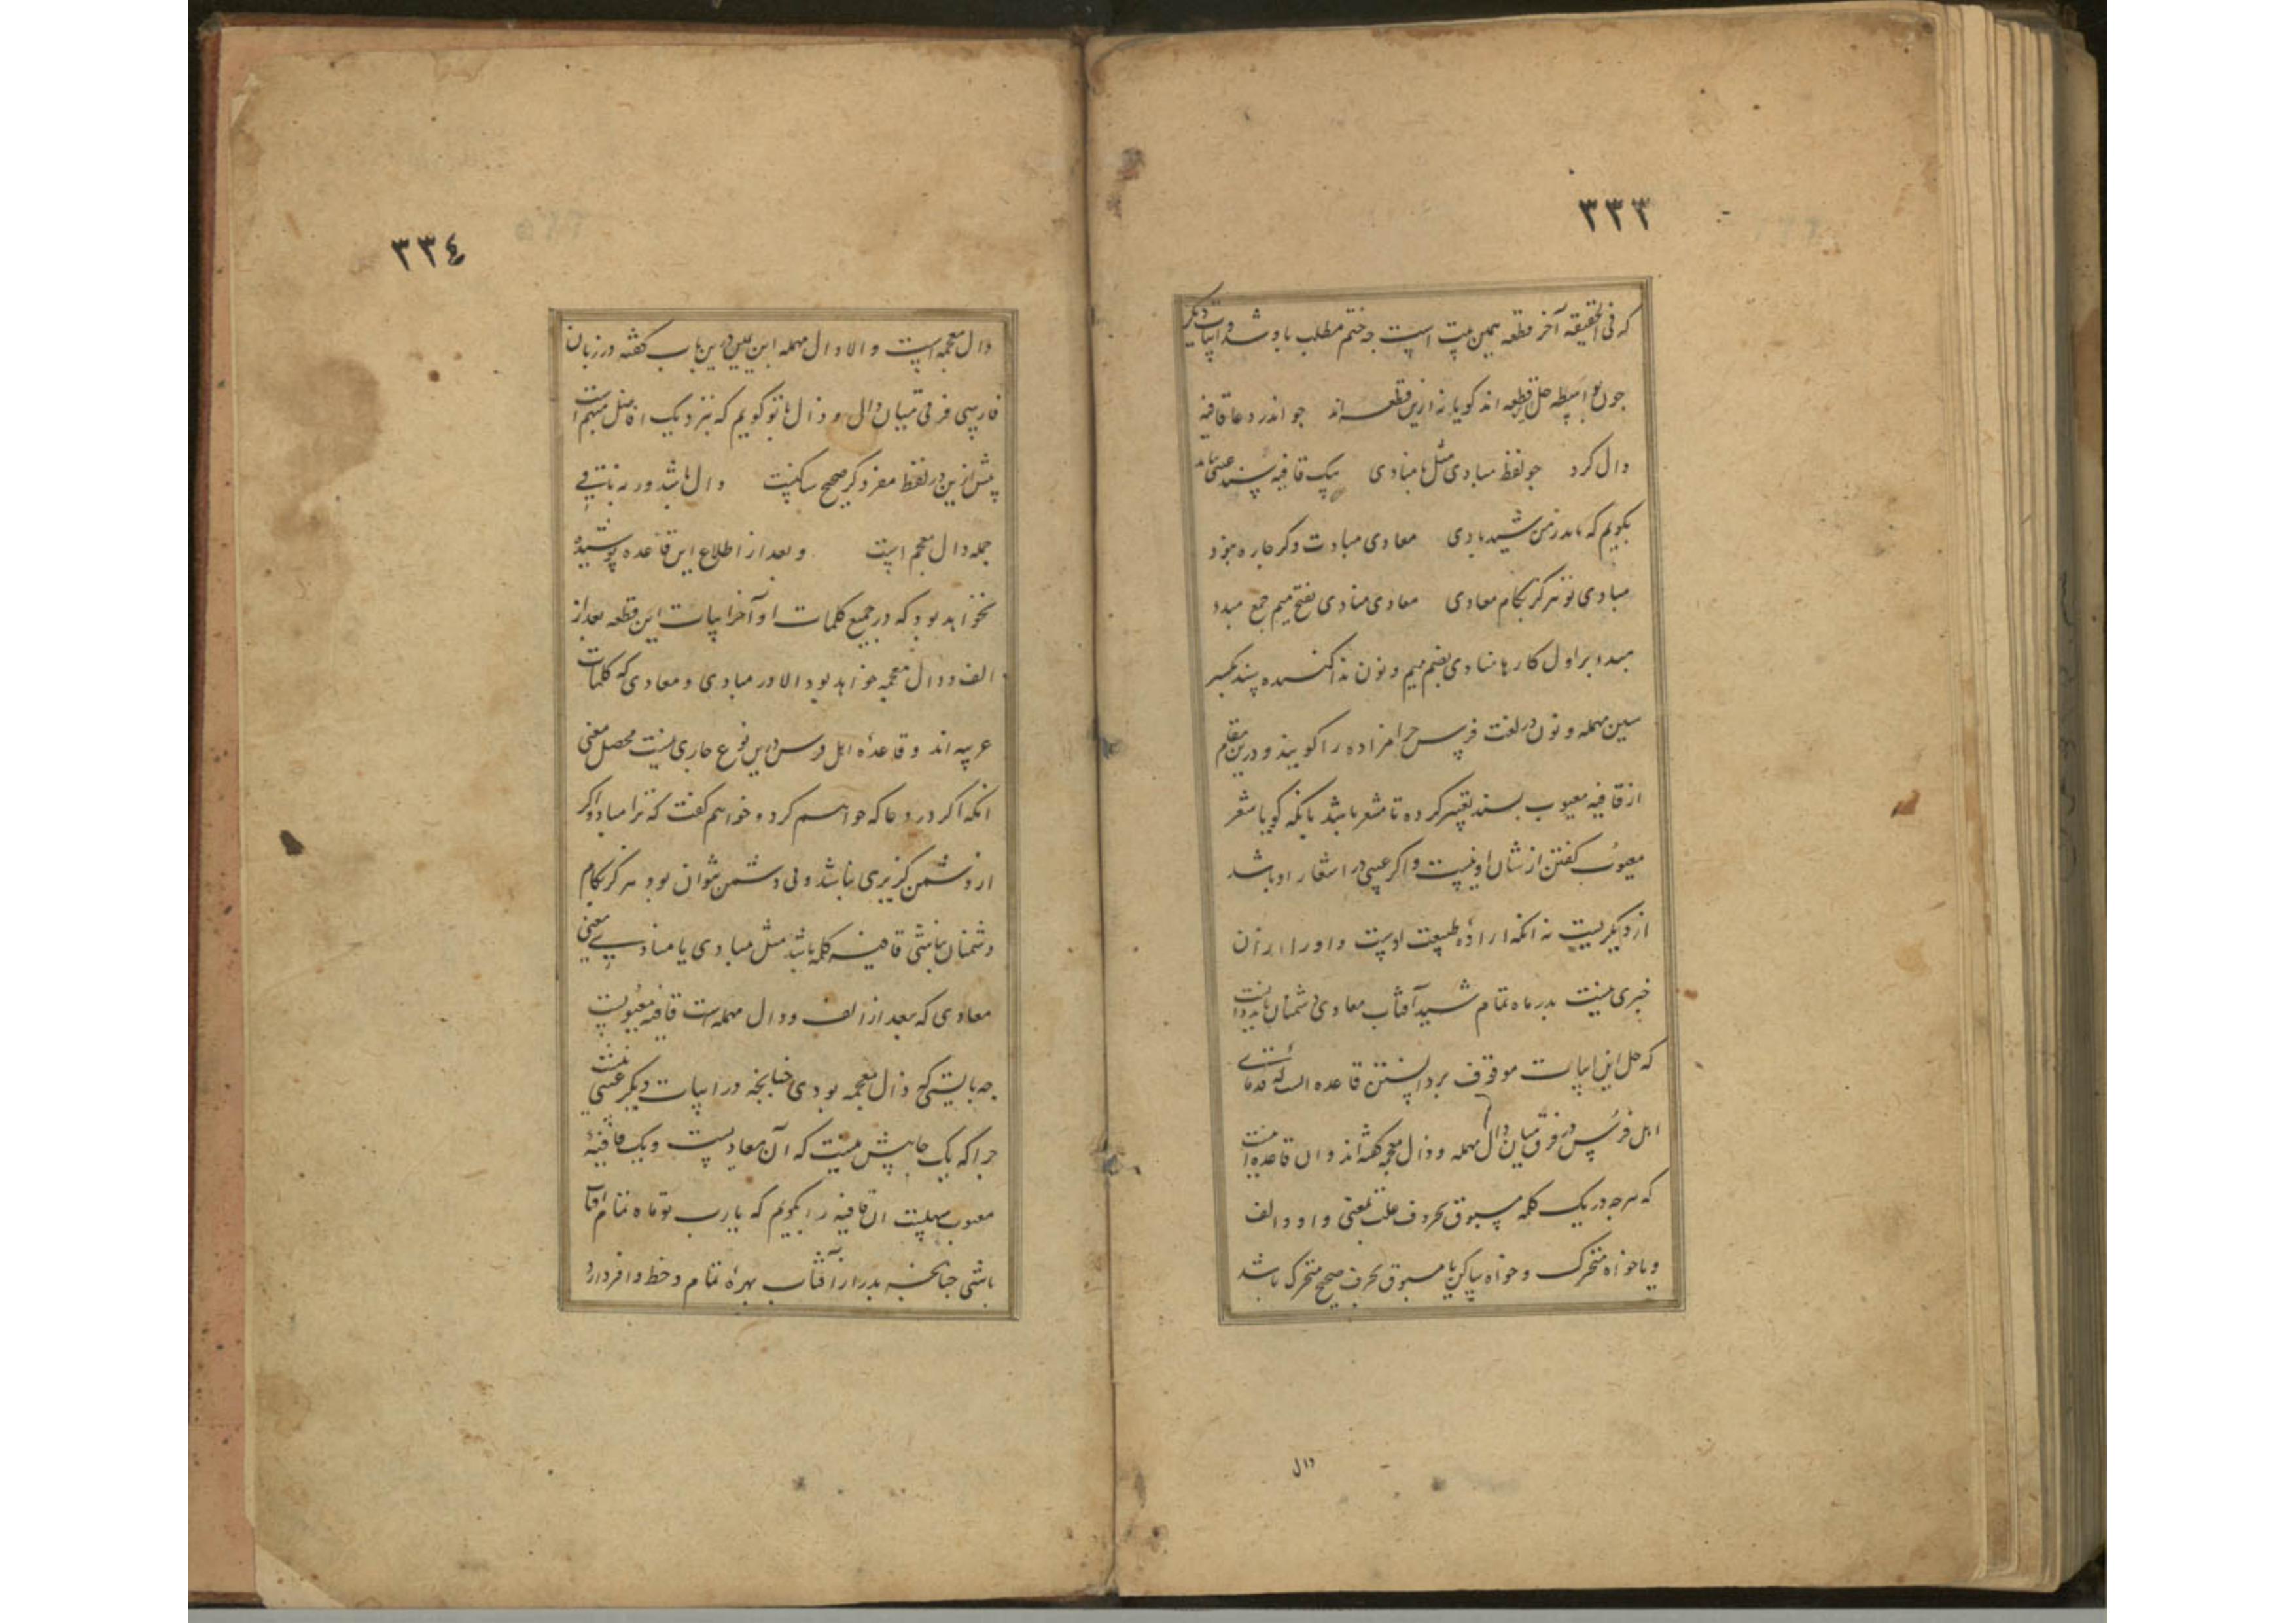 ۳۳۳
که فی الحقیقه آخر قطعه همین بیت است چه ختم مطلب باو شد و ابیات دیگر
چون بواسطه حل قطعه اند گویا نه ازین قطعه اند چو اندر دعا قافیه
دال کرد چو لفظ مبادی مثل با منادی یک قافیه سند عیبی ناند
بگویم که بدر زمن شید بادی معادی مبادت وگر چاره نبود
مبادی تو هرگز بکام معادی معادی منادی بفتح میم جمع مبدد
مبدء بر اول کارها منادی بضم میم و نون ندا کننده سند بکسر
سین مهمله و نون در لغت فرس حرامزاده را گویند و درین مقام
از قافیه معیوب بسند تعبیر کرده تا مشعر باشد بانکه گویا شعر
معیوب گفتن از شان او نیست و اگر عیبی در اشعار او باشد
از دیگریست نه آنکه زاده طبیعت اوست و او را از آن
خبری نیست بدر ماه تمام شید آفتاب معادی دشمنان باید دانست
که حل این ابیات موقوف بر دانستن قاعده الست که قدمای
اهل فرس در فرق میان دال مهمله و ذال معجمه گفته اند و ان قاعده اینست
که هرچه در یک کلمه مسبوق بحروف علت یعنی واو و الف
و یا خواه متحرک و خواه ساکن یا مسبوق بحرف صحیح متحرک باشد
دال
۳۳٤
دال معجمه است والا دال مهمله ابن یمین درین باب گفته در زبان
فارسی فرق میان دال و ذال با تو گویم که نزدیک افاضل مبهم است
پیش ازین در لفظ مفرد گر صحیح ساکنیست دال باشد ورنه باقی
جمله دال معجم است و بعد از اطلاع این قاعده پوشیده
نخواهد بود که در جمیع کلمات او آخر ابیات این قطعه بعد از
الف و دال معجمه خواهد بود الا در مبادی و معادی که کلمات
عربیه اند و قاعدهٔ اهل فرس در این نوع جاری نیست محصل معنی
انکه اگر در دعا که خواهم کرد و خواهم گفت که ترا مباد و اگر
از دشمن گزیری نباشد و بی دشمن نتوان بود هرگز بکام
دشمنان نباشی قافیه کلمه باشد مثل مبادی یا منادی یعنی
معادی که بعد از الف و دال مهمله است قافیه معیوبست
چه بایستی که ذال معجمه بودی چنانچه در ابیات دیگر عیبی نیست
چرا که یک جا بیش نیست که آن معادیست و یک قافیهٔ
معیوب سهلست ان قافیه را بگویم که یارب تو ماه تمام افتاب
باشی چنانچه بدر از آفتاب بهرهٔ تمام و حظ وافر دارد